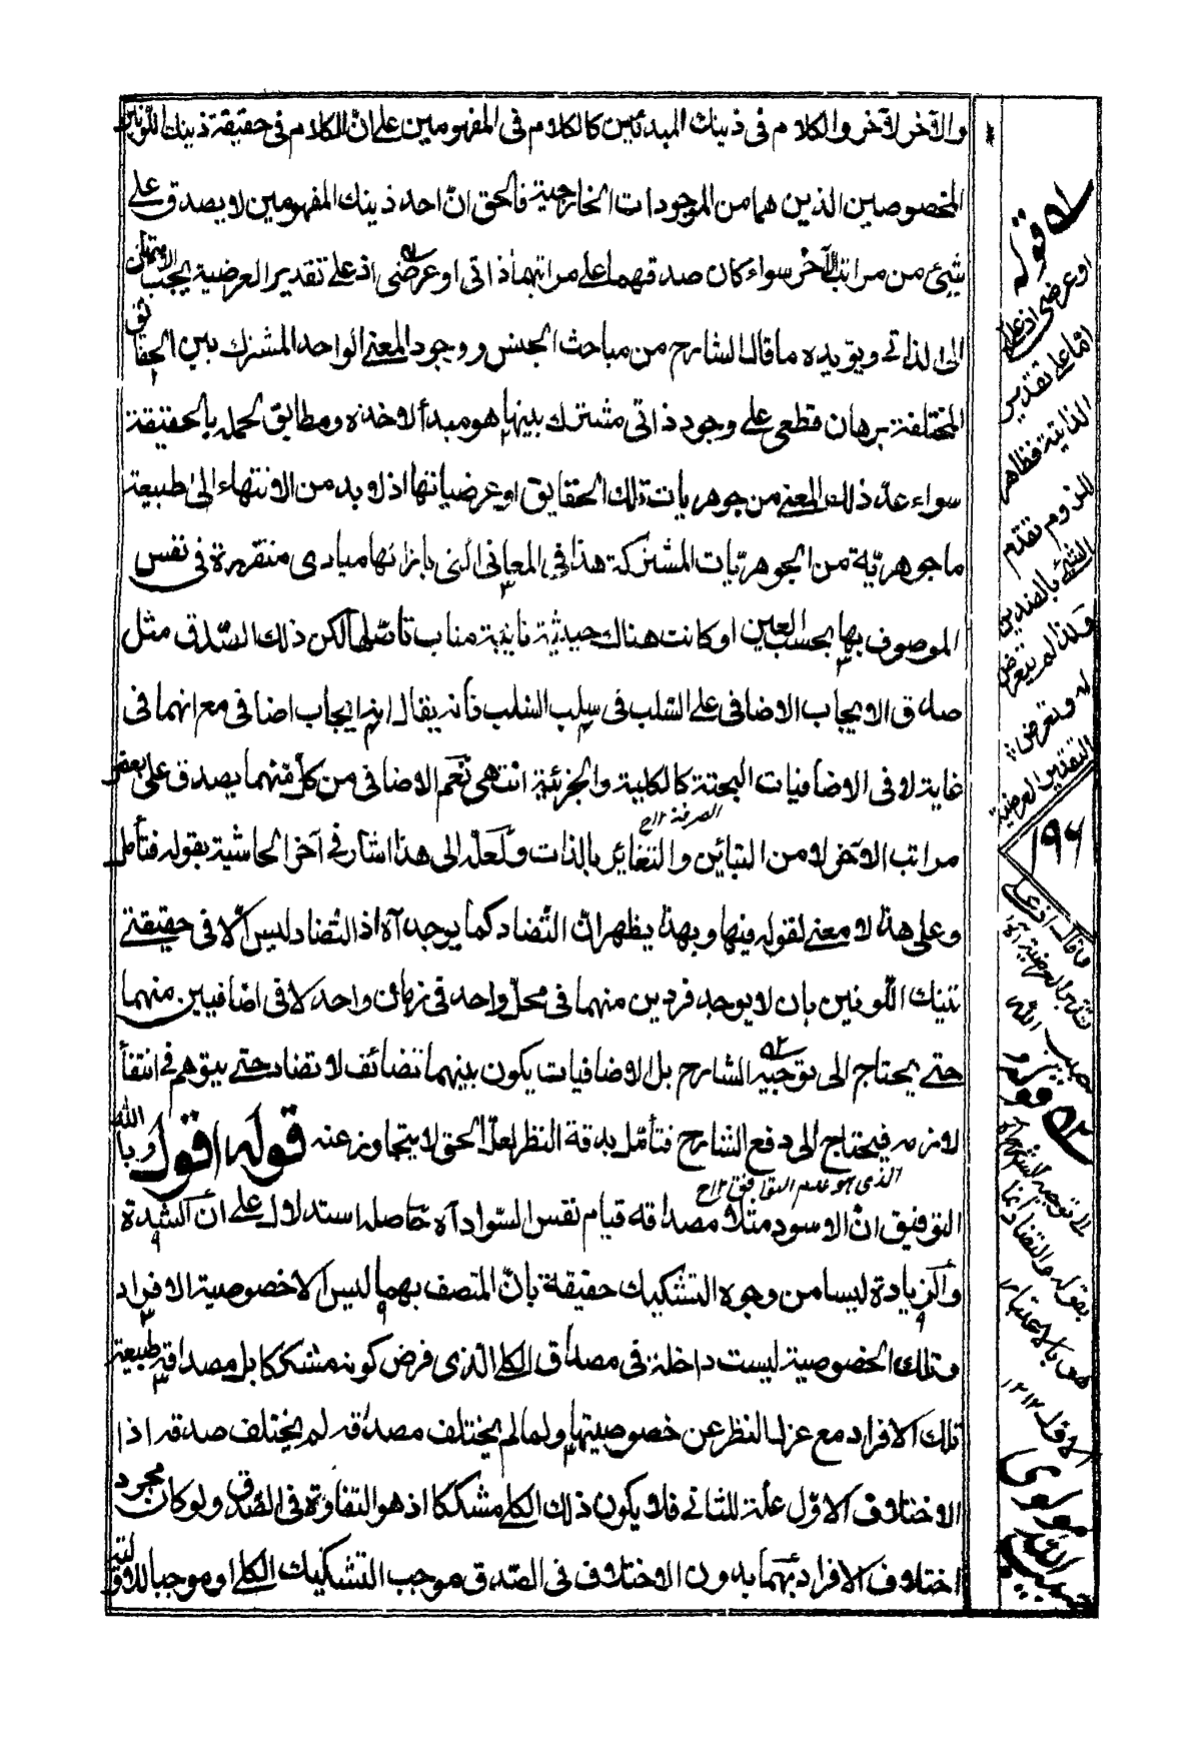 والآخر لآخر والكلام فى ذينك المبدئين كالكلام فى المفهومين على ان الكلام فى حقيقة ذينك اللونين
المخصوصين الذين هما من الموجودات الخارجية فالحق ان احد ذينك المفهومين لا يصدق على
شيئ من مراتب الآخر سواء كان صدقهما على مراتبهما ذاتى او عرضى اذ على تقدير العرضية يجب الانتهاء
الى الذاتى ويؤيده ما قال الشارح من مباحث الجنس ووجود المعنى الواحد المشترك بين الحقائق
المختلفة برهان قطعى على وجود ذاتى مشترك بينها هو مبدأ لاخذه ومطابق الحمل بالحقيقة
سواء عد ذلك المعنى من جوهريات تلك الحقايق او عرضياتها اذ لا بد من الانتهاء الى طبيعة
ما جوهرية من الجوهريات المشتركة هذا فى المعانى التى بازائها مبادى متقررة فى نفس
الموصوف بها بحسب العين او كانت هناك حيثية نائبة مناب تأصلها لكن ذلك الصدق مثل
صدق الايجاب الاضافى على السلب فى سلب السلب فانه يقال انه ايجاب اضافى مع انهما فى
غاية لا فى الاضافيات البحتة كالكلية والجزئية انتهى نعم الاضافى من كل منهما يصدق على بعض
الصرفة ١٢ ح
مراتب الآخر لا من التبائن والتغائر بالذات ولعله الى هذا اشار فى آخر الحاشية بقوله فتأمل
وعلى هذا لا معنى لقوله فيها وبهذا يظهر ان التضاد كما يوجد آه اذ التضاد ليس الا فى حقيقتى
تينك اللونين بان لا يوجد فردين منهما فى محل واحد فى زمان واحد لا فى اضافيين منهما
حتى يحتاج الى توجيه الشارح بل الاضافيات يكون بينهما تضائف لا تضاد حتى يتوهم فى انتفا
لازمه فيحتاج الى دفع الشارح فتأمل بدقة النظر لعل الحق لا يتجاوز عنه قوله اقول وبالله
الذى هو علم التوافق ١٢ ح
التوفيق ان الاسود مثلا مصداقه قيام نفس السواد آه حاصله استدلال على ان الشدة
والزيادة ليسا من وجوه التشكيك حقيقة بان المتصف بهما ليس الا خصوصية الافراد
وتلك الخصوصية ليست داخلة فى مصداق الكلى الذى فرض كونه مشككا بل مصداقه طبيعة
تلك الافراد مع عزل النظر عن خصوصيتها ولما لم يختلف مصداقه لم يختلف صدقه اذا
الاختلاف الاول علة للثانى فلا يكون ذلك الكلى مشككا اذ هو التفاوت فى الصدق ولو كان مجرد
اختلاف الافراد بهما بدون الاختلاف فى الصدق موجب التشكيك الكلى او موجبا للاولية
قوله
او عرضى اذ على
اما على تقدير
الذاتية فظاهر
للزوم تقدم
الشئ بالضدين
ولذا لم يتعرض
له وتعرض
التقدير العرضية
١٩٦
فقال اذ على
تقدير العرضية آه
حبيب الله
قوله
توجيه الشارح
بقوله والتضاد انما
هو بالاعتبار
١٢
مولوى
حبيب الله